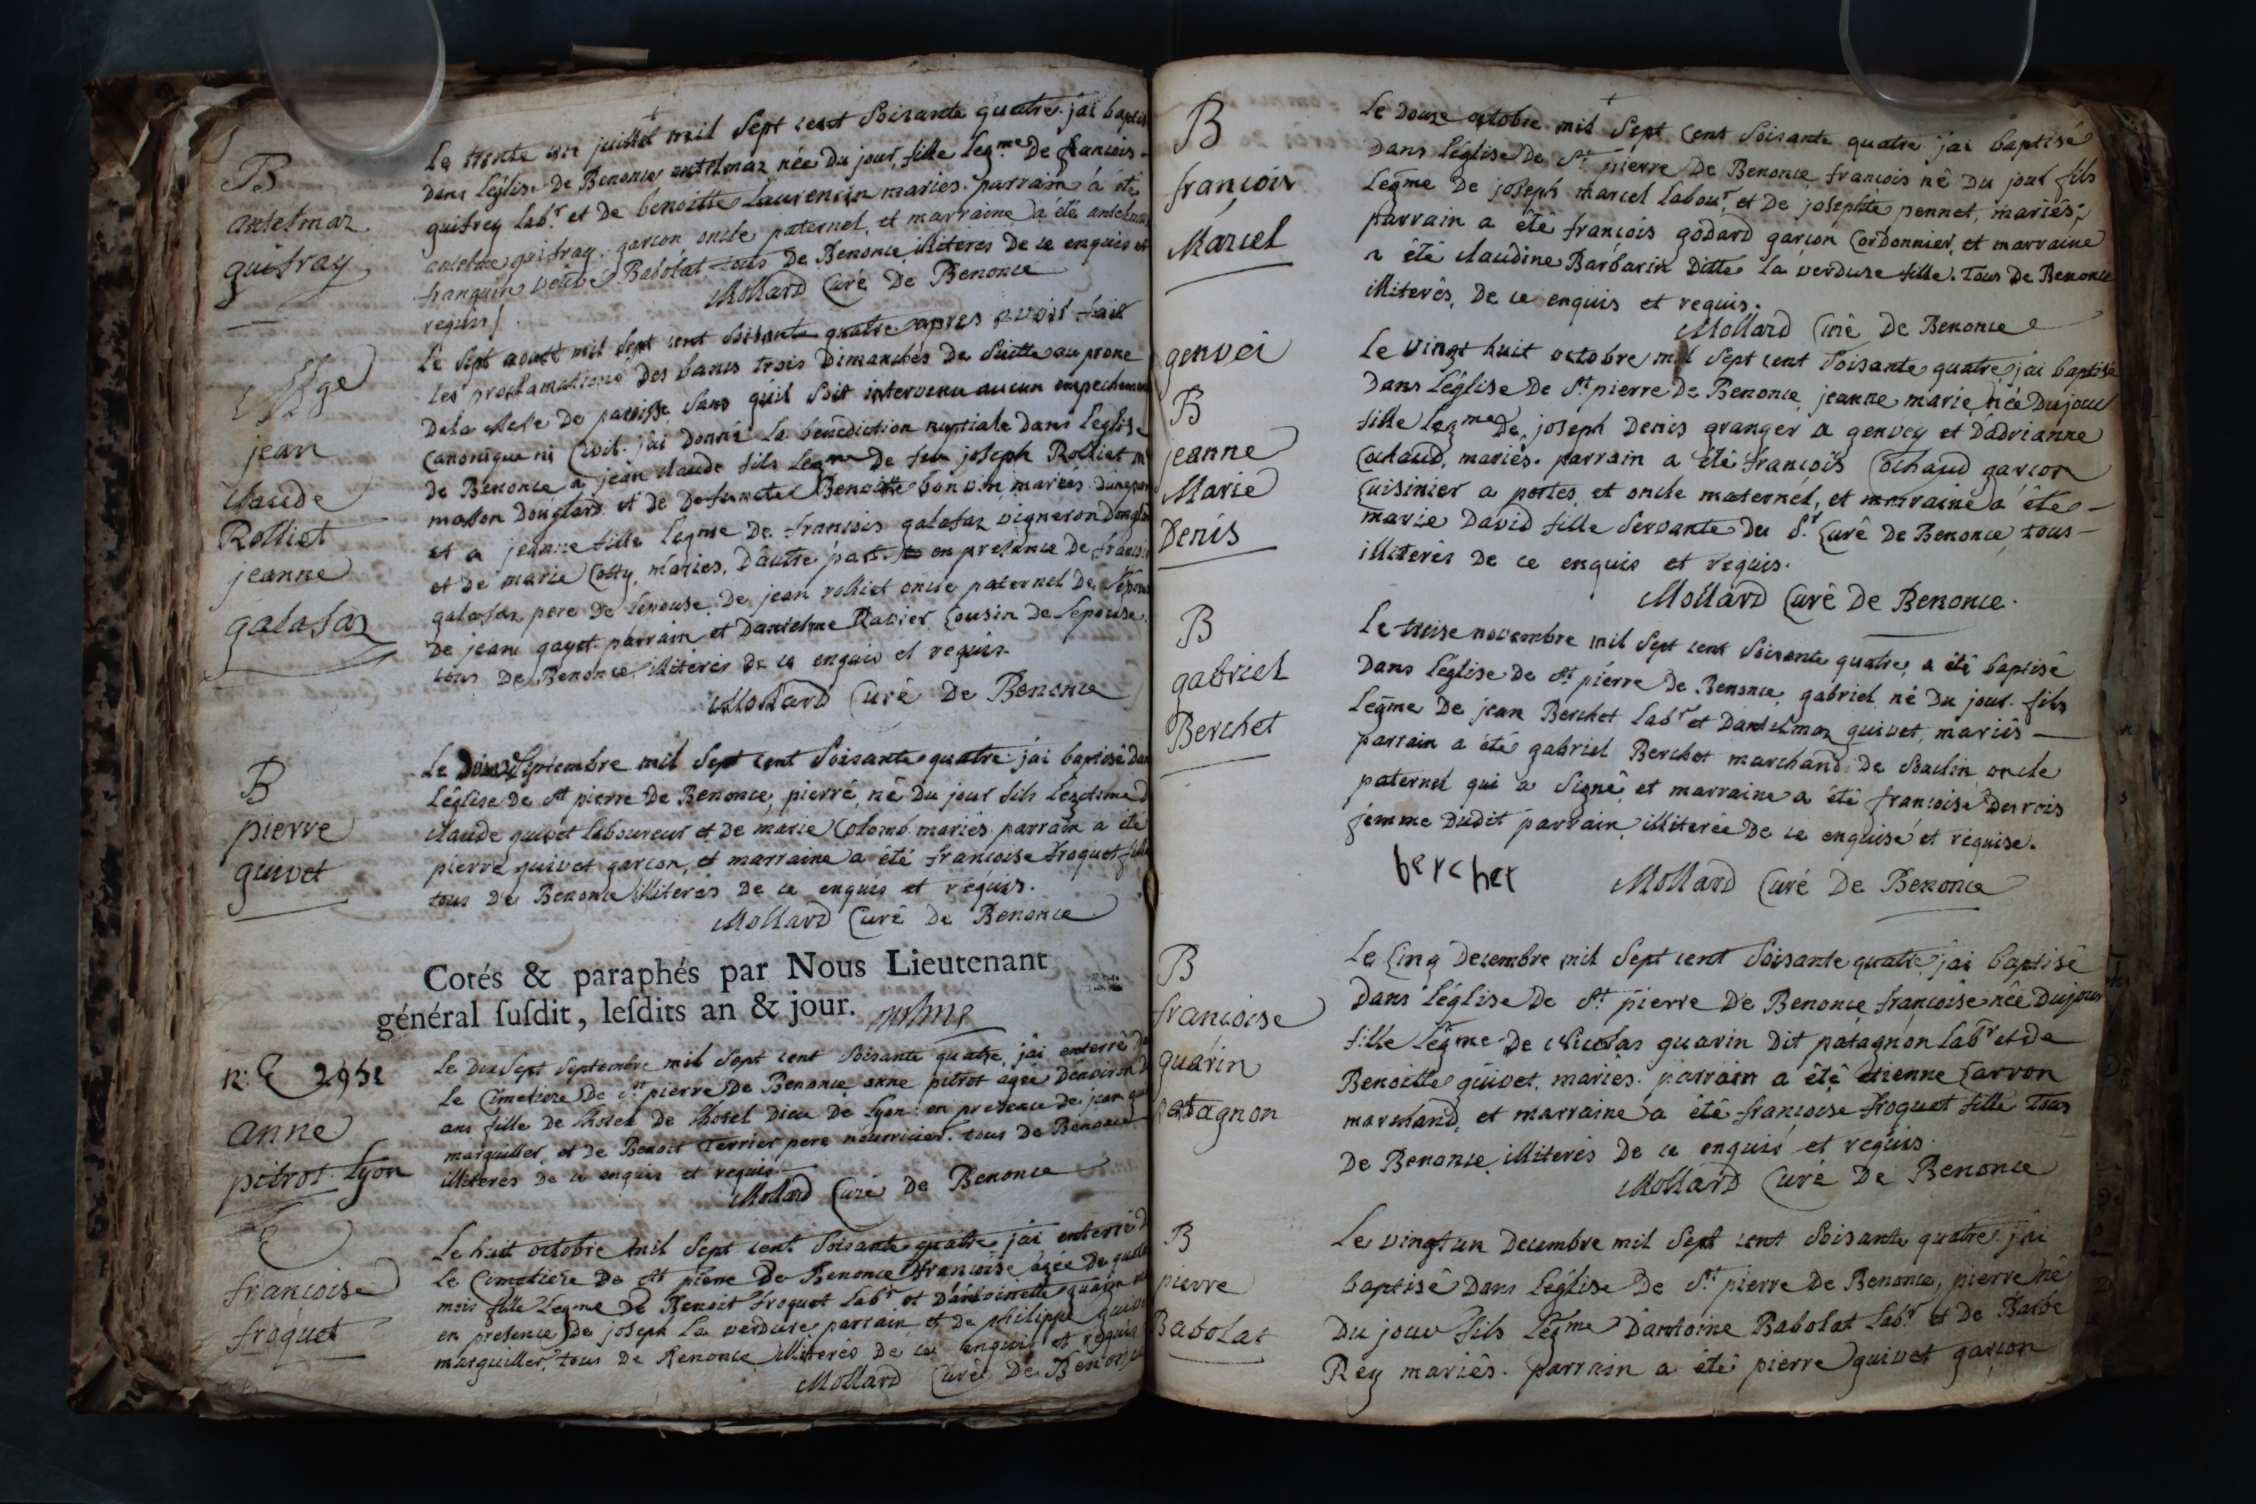 B
antelmaz
guifray
Le trente un juillet mil Sept cent Soisante quatre j'ai baptis
Dans Léglise De Benonce antelmaz née Du jour, fille Leg.me De francois
guifrey Lab.r et De benoitte Laurencin mariés. parrain a été
antelme guifray garcon oncle paternel, et marraine a été antelmaz
franquin veuve Babolat tous De Benonce illiterés De ce enquis et
requis /.
Mollard Curé De Benonce
jean
claude
Rolliet
jeanne
galafaz
Le Sept aoust mil Sept cent Soisante quatre apres avoir fait
Les proclamations Des bancs trois Dimanches De Suitte au prone
De la Messe De paroisse Sans quil Soit intervenu aucun empechement
Canonique ni Civil. j'ai Donné La benediction nuptiale Dans Léglise
De Benonce a jean claude fils Legme De feu joseph Rolliet
masson Douglard et De Defuncte Benoitte bonvin, mariés Dune part
et a jeanne fille Legme De francois galafaz vigneron
et De marie Cotty, mariés, Dautre part en presance De francois
galafaz pere De Lepouse, De jean rolliet oncle paternel De Lepoux
De jean gayet parrain et Dantelme Ravier Cousin De Lepouse.
tous De Benonce illiterés De ce enquis et requis.
Mollard Curé De Benonce
B
pierre
guivet
Le Septembre mil Sept cent Soisante quatre j'ai baptisé Dans
Léglise De St pierre De Benonce, pierre, né Du jour fils Legitime D
claude guivet Laboureur et De marie Colomb mariés. parrain a été
pierre guivet garcon, et marraine a été francoise froquet fille
tous De Benonce illiterés De ce enquis et requis.
Mollard Curé De Benonce
Cotés & paraphés par Nous Lieutenant
général ſuſdit, leſdits an & jour.
n.º 2951
anne
pitrot Lyon
Le Dix Sept Septembre mil Sept cent Soisante quatre, j'ai enterré D
Le Cimetiere De St pierre De Benonce anne pitrot agée Denviron D
ans fille De hotel De Lhotel Dieu De Lyon: en presence De jean
marguiller, et De Benoit Terrier pere nourricier. tous De Benonce
illiterés De ce enquis et requis
Mollard Curé De Benonce
E
francoise
froquet
Le huit octobre mil Sept cent Soisante quatre j'ai enterré D
Le Cimetiere De St pierre De Benonce francoise agée De quatre
mois fille Legme De Benoit froquet Lab.r et D'antoinette guarin
en presence De joseph La verdure parrain, et De philippe guivet
marguiller. tous De Benonce illiterés De ce enquis et requis
Mollard Curé De Benonce
B
françois
Marcel
Le Douze octobre mil Sept cent Soisante quatre j'ai baptisé
Dans Léglise De St pierre De Benonce francois né Du jour fils
Legme De joseph marcel Labou.r et De josephte pennet, mariés;
parrain a été francois godard garcon Cordonnier, et marraine
a été claudine Barbarin Ditte La verdure fille. tous De Benonce
illiterés, De ce enquis et requis.
Mollard Curé De Benonce
genvei
B
jeanne
Marie
Denis
Le vingt huit octobre mil Sept cent Soisante quatre j'ai baptisé
Dans Léglise De St pierre De Benonce, jeanne marie, née Du jour
fille Legme De, joseph Denis granger a genvey et Dadrianne
Cochaud, mariés. parrain a été françois Cochaud garcon
Cuisinier a portes, et oncle maternel, et marraine a été
marie David fille Servante Du S.r Curé De Benonce, tous
illiterés De ce enquis et requis.
Mollard Curé De Benonce.
B
gabriel
Berchet
Le treise novembre mil Sept cent Soisante quatre, a été baptisé
Dans Léglise De St pierre De Benonce, gabriel né Du jour. fils
Legme De jean Berchet Lab.r et Dantelmaz guivet, mariés
parrain a été gabriel Berchet marchand De oncle
paternel qui a Signé, et marraine a été francoise Desrois
femme Dudit parrain, illiterée De ce enquise et requise.
bercher
Mollard Curé De Benonce
B
francoise
guarin
patagnon
Le Cinq Decembre mil Sept cent Soisante quatre j'ai baptisé
Dans Léglise De St pierre De Benonce francoise née Du jour
fille Legme De Nicolas guarin Dit patagnon Lab.r et De
Benoitte guivet, mariés. parrain a été étienne Carron
marchand, et marraine a été francoise froquet fille Tous
De Benonce, illiterés De ce enquis et requis.
Mollard Curé De Benonce
B
pierre
Babolat
Le vingt un Decembre mil Sept cent Soisante quatre j'ai
baptisé Dans Léglise De St pierre De Benonce, pierre né
Du jour fils Legme D'antoine Babolat Lab.r et De Barbe
Rey mariés. parrain a été pierre guivet garcon